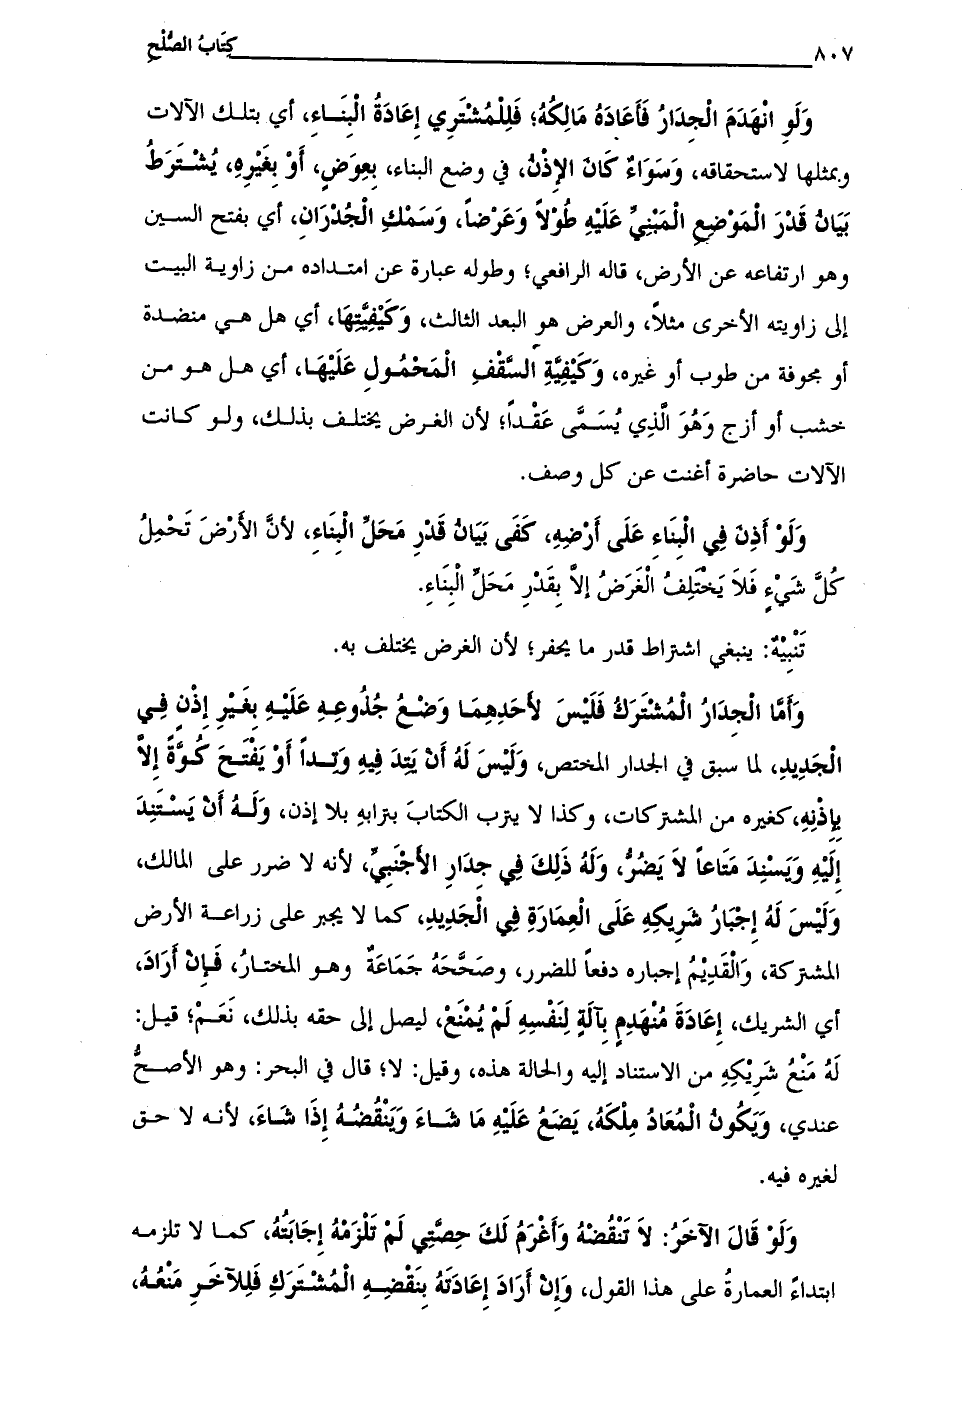 ٨٠٧ كِتَابُ الصُّلْحِ
وَلَوِ انْهَدَمَ الْجِدَارُ فَأَعَادَهُ مَالِكُهُ؛ فَلِلْمُشْتَرِي إِعَادَةُ الْبِنَـاءِ، أي بتلـك الآلات
وبمثلها لاستحقاقه، وَسَوَاءٌ كَانَ الإِذْنُ، في وضع البناء، بِعِوَضٍ، أَوْ بِغَيْرِهِ، يُشْـتَرَطُ
بَيَانُ قَدْرَ الْمَوْضِعِ الْمَبْنِيِّ عَلَيْهِ طُوْلاً وَعَرْضاً، وَسَمْكِ الْجُدْرَانِ، أي بفتح السـين
وهو ارتفاعه عن الأرض، قاله الرافعي؛ وطوله عبارة عن امتـداده مـن زاويـة البيـت
إلى زاويته الأخرى مثلاً، والعرض هو البعد الثالث، وَكَيْفِيَّتِهَا، أي هل هـي منضـدة
أو مجوفة من طوب أو غيره، وَكَيْفِيَّةِ السَّقْفِ الْمَحْمُـولِ عَلَيْهَـا، أي هـل هـو مـن
خشب أو أزج وَهُوَ الَّذِي يُسَـمَّى عَقْـداً؛ لأن الغـرض يختلـف بذلـك، ولـو كـانت
الآلات حاضرة أغنت عن كل وصف.
وَلَوْ أَذِنَ فِي الْبِنَاءِ عَلَى أَرْضِهِ، كَفَى بَيَانُ قَدْرِ مَحَلِّ الْبِنَاءِ، لأنَّ الأَرْضَ تَحْمِلُ
كُلَّ شَيْءٍ فَلاَ يَخْتَلِفُ الْغَرَضُ إلاَّ بِقَدْرِ مَحَلِّ الْبِنَاءِ.
تَنْبِيْهٌ: ينبغي اشتراط قدر ما يحفر؛ لأن الغرض يختلف به.
وَأَمَّا الْجِدَارُ الْمُشْتَرَكُ فَلَيْسَ لأَحَدِهِمَـا وَضْـعُ جُذُوعِـهِ عَلَيْـهِ بِغَيْرِ إِذْنٍ فِـي
الْجَدِيدِ، لما سبق في الجدار المختص، وَلَيْسَ لَهُ أَنْ يَتِدَ فِيهِ وَتِـداً أَوْ يَفْتَـحَ كُوَّةً إِلاَّ
بِإِذْنِهِ،كغيره من المشتركات، وكذا لا يترب الكتابَ بترابهِ بلا إذن، وَلَـهُ أَنْ يَسْـتَنِدَ
إِلَيْهِ وَيَسْنِدَ مَتَاعاً لاَ يَضُرُّ، وَلَهُ ذَلِكَ فِي جِدَارِ الأَجْنَبِيِّ، لأنه لا ضرر على المالك،
وَلَيْسَ لَهُ إِجْبَارُ شَرِيكِهِ عَلَى الْعِمَارَةِ فِي الْجَدِيدِ، كما لا يجبر على زراعـة الأرض
المشتركة، وَالْقَدِيْمُ إجباره دفعاً للضرر، وصَحَّحَهُ جَمَاعَةٌ وهـو المختارُ، فَـإِنْ أَرَادَ،
أي الشريك، إِعَادَةَ مُنْهَدِمٍ بِآلَةٍ لِنَفْسِهِ لَمْ يُمْنَعْ، ليصل إلى حقه بذلك، نَعَـمْ؛ قيل:
لَهُ مَنْعُ شَرِيْكِهِ من الاستناد إليه والحالة هذه، وقيل: لا؛ قال في البحر: وهو الأصـحُّ
عندي، وَيَكُونُ الْمُعَادُ مِلْكَهُ، يَضَعُ عَلَيْهِ مَا شَـاءَ وَيَنْقُضُـهُ إِذَا شَـاءَ، لأنـه لا حـق
لغيره فيه.
وَلَوْ قَالَ الآخَرُ: لاَ تَنْقُضْهُ وَأَغْرَمُ لَكَ حِصَّتِي لَمْ تَلْزَمْهُ إِجَابَتُهُ، كمـا لا تلزمـه
ابتداءً العمارةُ على هذا القول، وَإِنْ أَرَادَ إِعَادَتَهُ بِنَقْضِـهِ الْمُشْـتَرَكِ فَلِلآخَـرِ مَنْعُـهُ،